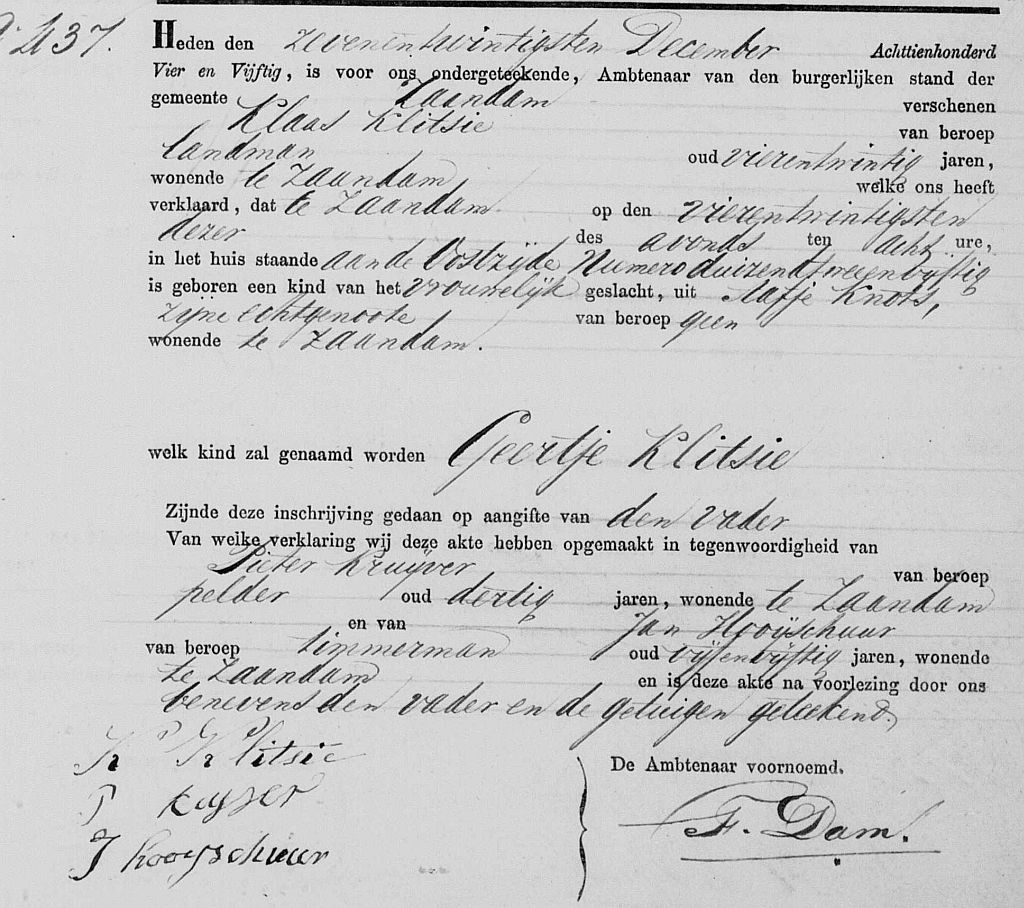 No. 437.
Heden den zevenentwintigsten December Achttienhonderd
Vier en Vijftig, is voor ons ondergeteekende, Ambtenaar van den burgerlijken stand der
gemeente Zaandam verschenen
Klaas Klitsie van beroep
landman oud vierentwintig jaren,
wonende te Zaandam, welke ons heeft
verklaard, dat te Zaandam op den vierentwintigsten
dezer des avonds ten acht ure,
in het huis staande aan de Oostzijde Numero duizend tweeenvijftig
is geboren een kind van het vrouwelijk geslacht, uit Aafje Knots,
zijne echtgenoote van beroep geen
wonende te Zaandam.
welk kind zal genaamd worden Geertje Klitsie
Zijnde deze inschrijving gedaan op aangifte van den vader
Van welke verklaring wij deze akte hebben opgemaakt in tegenwoordigheid van
Pieter Kruijver van beroep
pelder oud dertig jaren, wonende te Zaandam
en van Jan Hooijschuur
van beroep timmerman oud vijfenvijftig jaren, wonende
te Zaandam en is deze akte na voorlezing door ons
benevens den vader en de getuigen geteekend.
K P Klitsie
De Ambtenaar voornoemd,
P
F. Dam.
J hooyschuur